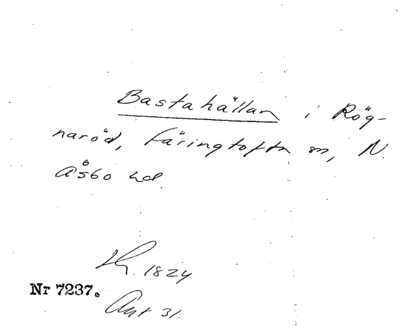 Bastahällan i Rög-
naröd, Färingtofta sn, N.
Åsbo hd.
1824
Nr 7237.
Akt 31.